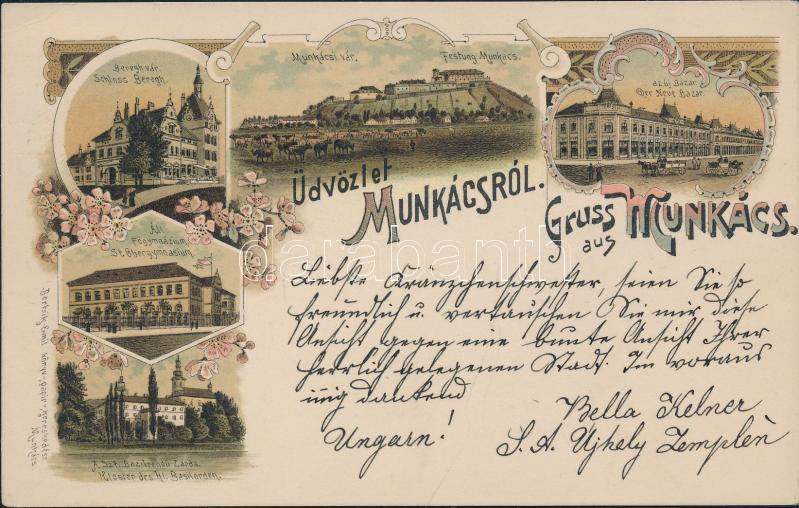 Beregh-vár.
Schloss Beregh.
Munkácsi vár.
Festung Munkács.
az új Bazar.
Der Neue Bazar.
Üdvözlet
MUNKÁCSRÓL.
Gruss
aus
MUNKÁCS.
Áll.
Főgymnázium.
St. Obergymnasium.
A Szt. Bazilrendű Zárda.
Kloster des hl. Basilorden.
Munkács
Liebste Kränzchenschwester, seien Sie so
freundlich u. vertauschen Sie mir diese
Ansicht gegen eine bunte Ansicht Ihrer
herrlich gelegenen Stadt. Im voraus
innig dankend
Bella Kelner
Ungarn!
S. A. Ujhely Zemplèn
darabanth.com